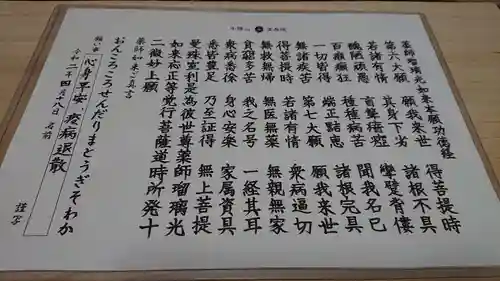 薬師瑠璃光如来本願功徳経
第六大願 願我来世 得菩提時
若諸有情 其身下劣 諸根不具
醜陋頑愚 盲聾瘖瘂 攣躄背僂
百癩癲狂 種種病苦 聞我名已
一切皆得 端正黠恵 諸根完具
無諸疾苦 第七大願 願我来世
得菩提時 若諸有情 衆病逼切
無救無帰 無医無薬 無親無家
貧窮多苦 我之名号 一経其耳
衆病悉除 身心安楽 家属資具
悉皆豊足 乃至証得 無上菩提
曼殊室利是為彼世尊薬師瑠璃光
如来応正等覚行菩薩道時所発十
二微妙上願
薬師如来ご真言
おんころころせんだりまとうぎそわか
願い事 心身平安 疫病退散
令和二年四月十八日 名前 謹写